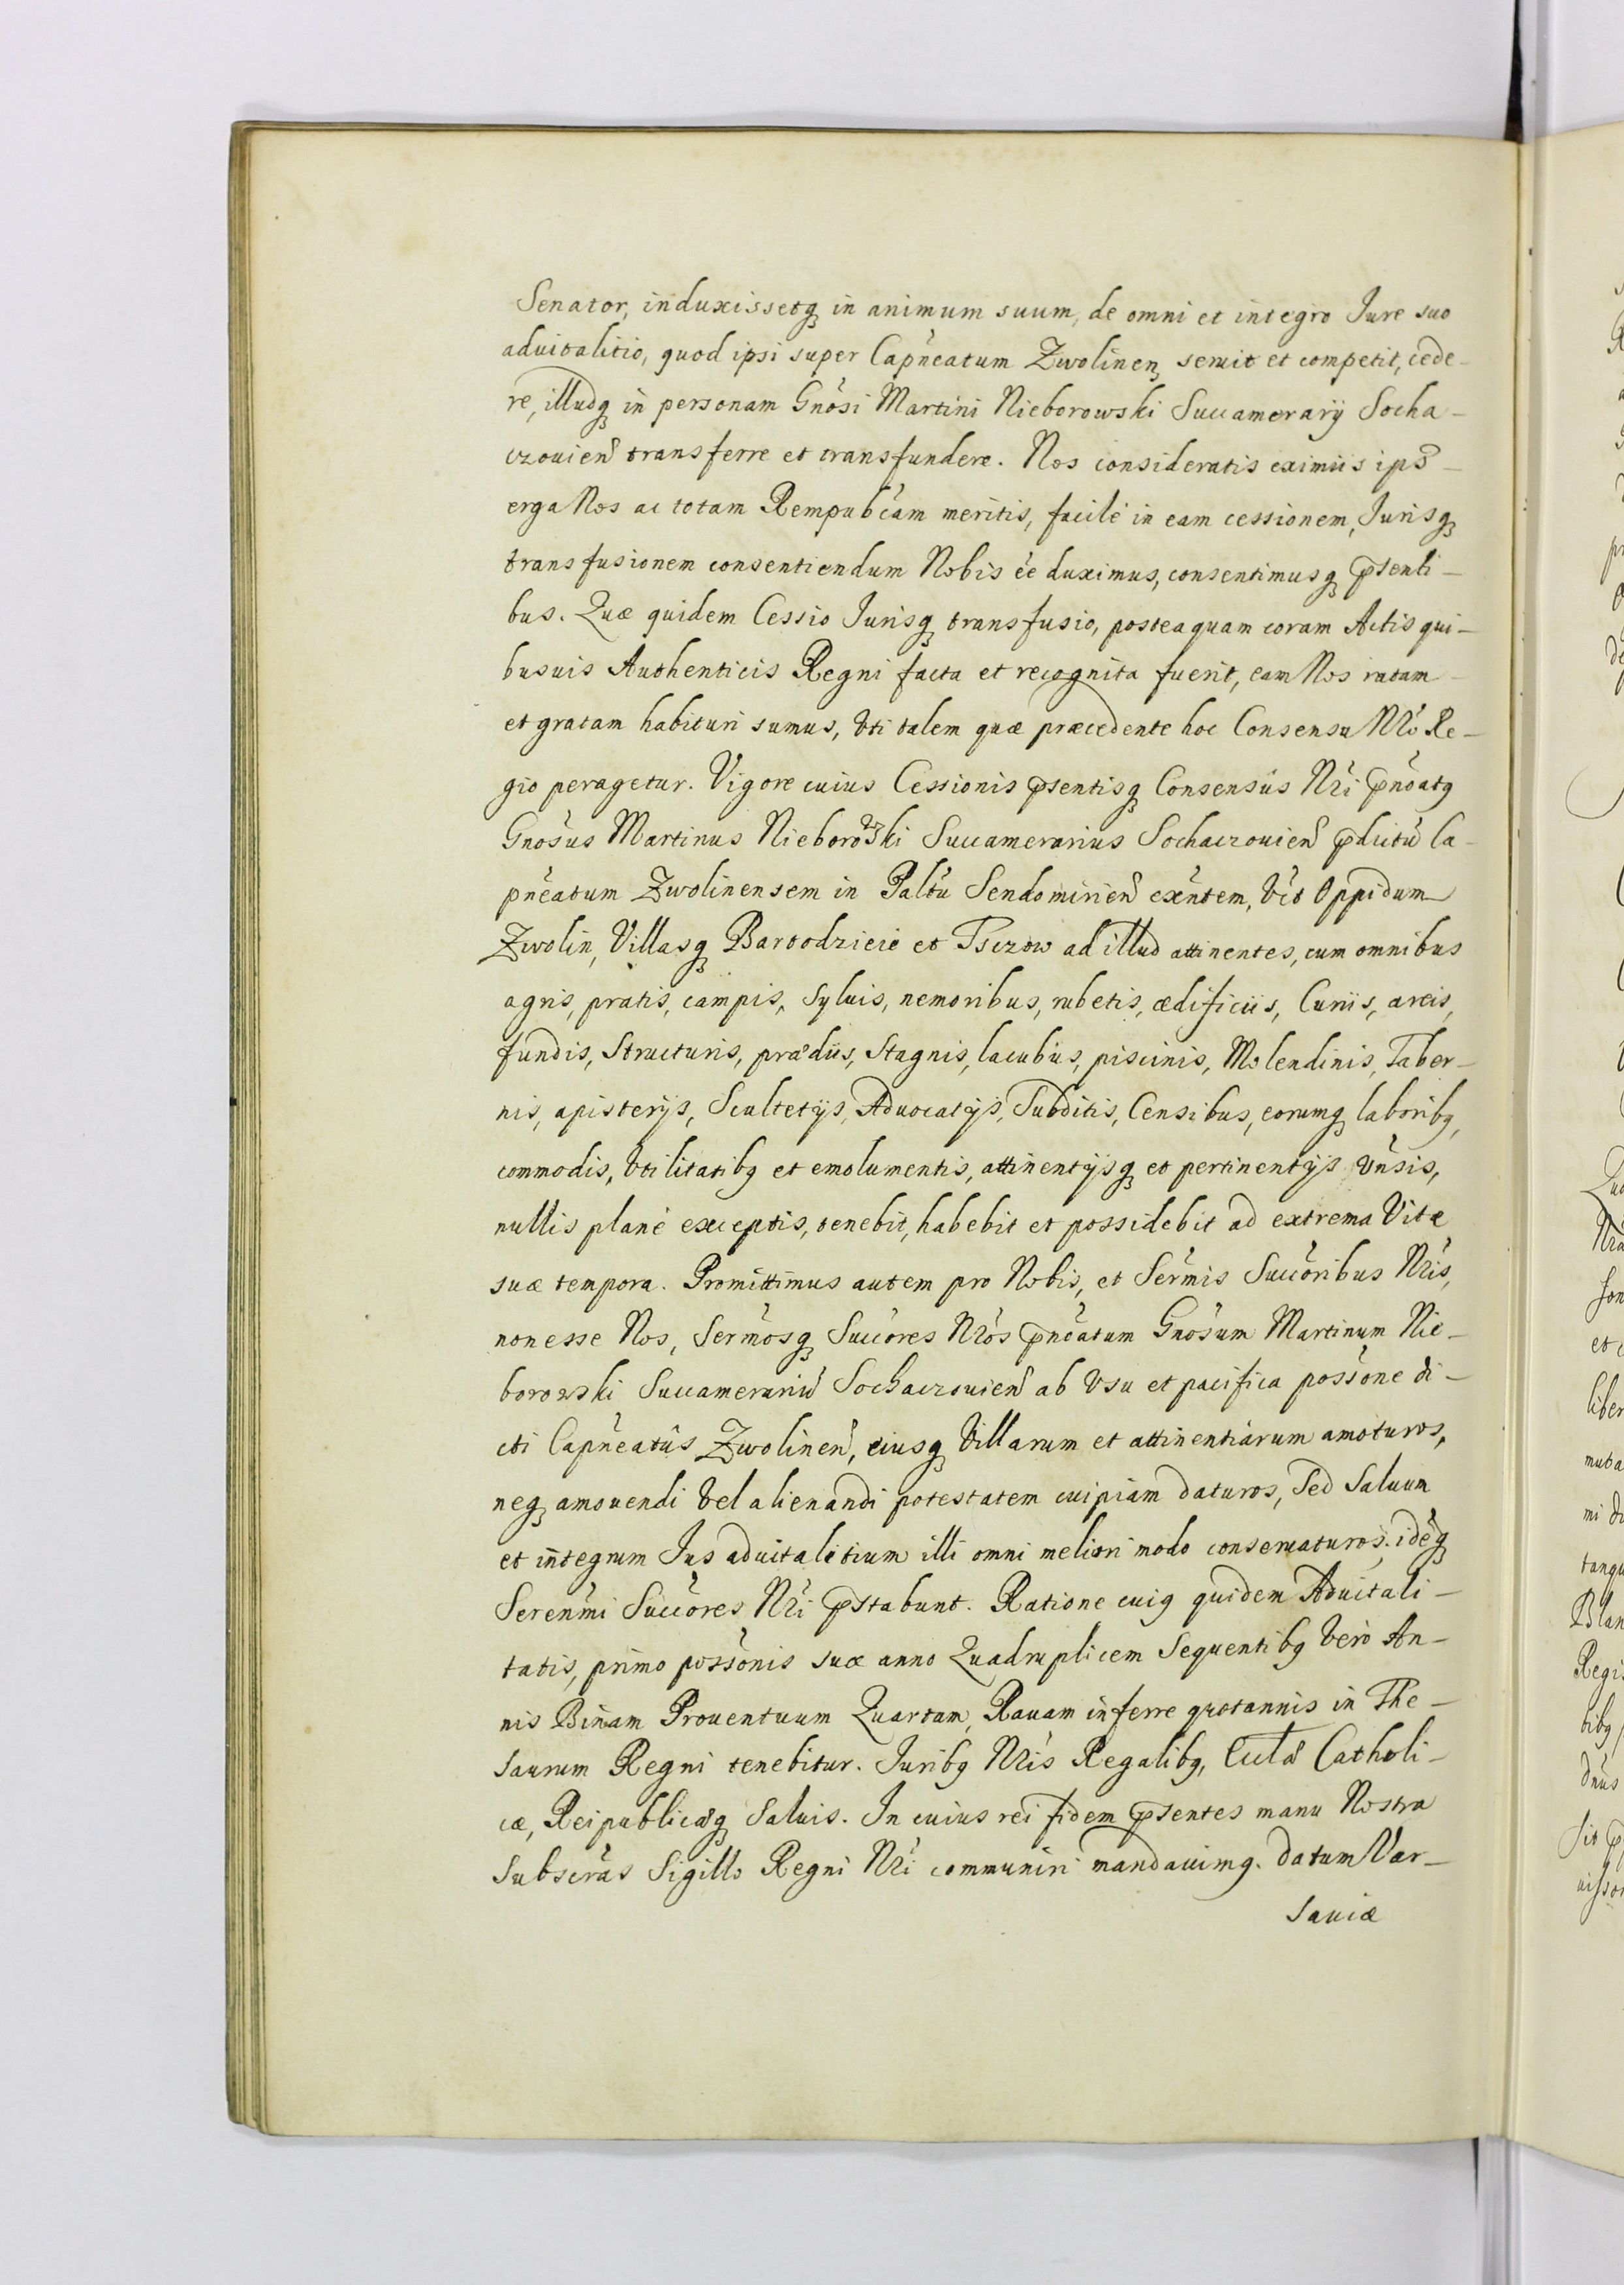 Senator, induxissetq in animum suum, de omni et integro Jure suo
aduitalitio, quod ipsi super Capneatum Zwolinen seruit et competit, cede-
re, illudq in personam Gnosi Martini Nieborowski Succamerarij Socha-
czouien transferre et transfundere. Nos consideratis eximiis ips
erga Nos ac totam Rempubcam meritis, facilè in eam cessionem, Jurisq
transfusionem consentiendum Nobis ee duximus, consentimusq psenti-
bus. Quæ quidem Cessio Jurisq transfusio, posteaquam coram Actis qui-
busuis Authenticis Regni facta et recognita fuerit, eam Nos ratam
et gratam habituri sumus, vti talem quæ præcedente hoc Consensu Nro Re-
gio peragetur. Vigore cuius Cessionis psentisq Consensus Nri pnoatq
Gnosus Martinus Nieborowski Succamerarius Sochaczouien pdictu Ca-
pneatum Zwolinensem in Paltu Sendomirien exntem, vit Oppidum
Zwolin, Villasq Bartodzieie et Tsczow ad illud attinentes, cum omnibus
agris, pratis, campis, syluis, nemoribus, rubetis, ædificiis, Curiis, areis,
fundis, Structuris, prædiis, Stagnis, lacubus, piscinis, Molendinis, Taber-
nis, apisterijs, Scultetijs, Aduocatijs, Subditis, Censibus, eorumq laboribq,
commodis, vtilitatibq et emolumentis, attinentijsq et pertinentijs vnsis,
nullis planè exceptis, tenebit, habebit et possidebit ad extrema Vitæ
suæ tempora. Promittimus autem pro Nobis, et Sermis Succoribus Nris,
non esse Nos, Sermosq Succores Nros pneatum Gnosum Martinum Nie-
borowski Succamerariu Sochaczouien ab vsu et pacifica possone di-
cti Capneatûs Zwolinen, eiusq Villarum et attinentiarum amoturos,
neq amouendi vel alienandi potestatem cuipiam daturos, Sed Saluum
et integrum Jus aduitalitium illi omni meliori modo conseruaturos. ideq
Serenmi Succores Nri pstabunt. Ratione cuiq quidem Aduitali-
tatis, primo possonis suæ anno Quadruplicem Sequentibq verò An-
nis Binam Prouentuum Quartam, Rauam inferre quotannis in The-
saurum Regni tenebitur. Juribq Nris Regalibq, Ecclæ Catholi-
cæ, Reipublicæq Saluis. In cuius rei fidem psentes manu Nostra
Subscras Sigillo Regni Nri communiri mandauimq. Datum Var-
sauiæ